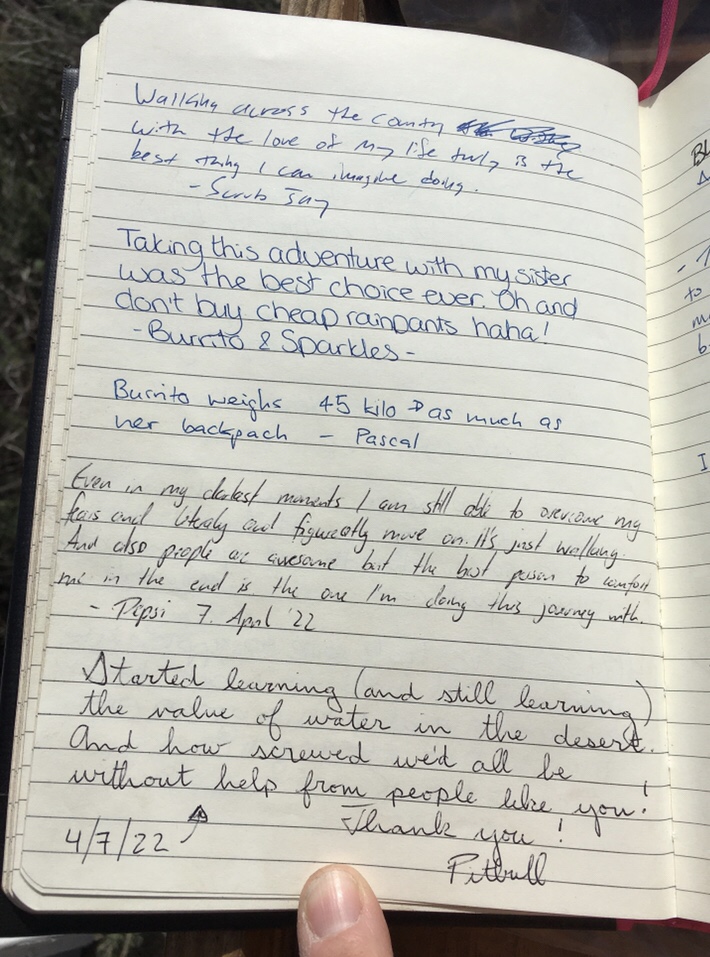 Walking across the county
with the love of my life truly is the
best thing I can imagine doing.
- Scrub Jay
Taking this adventure with my sister
was the best choice ever. Oh and
don't buy cheap rainpants haha!
- Burrito & Sparkles -
Burrito weighs 45 kilo → as much as
her backpach - Pascal
Even in my darkest moments I am still able to overcome my
fears and literaly and figureatly move on. It's just walking.
And also people are awesome but the best person to comfort
me in the end is the one I'm doing this journey with.
- Pepsi 7. April '22
Started learning (and still learning)
the value of water in the desert.
And how screwed we'd all be
without help from people like you!
Thank you!
4/7/22
Pitbull
BL
to
I